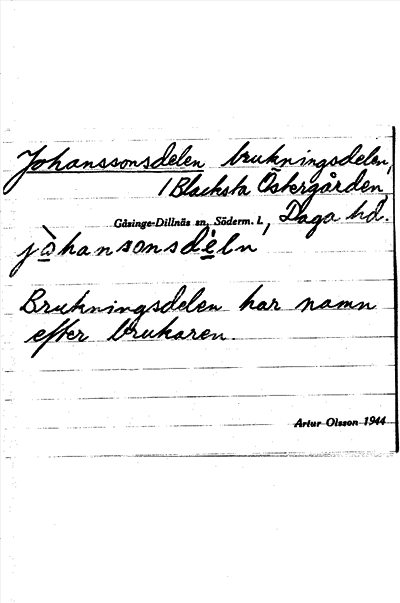 Johanssonsdelen brukningsdelen,
/ Blacksta Östergården,
Gåsinge-Dillnäs sn, Söderm. l., Daga hd.
jòhansonsdèln
Brukningsdelen har namn
efter brukaren.
Artur Olsson 1944